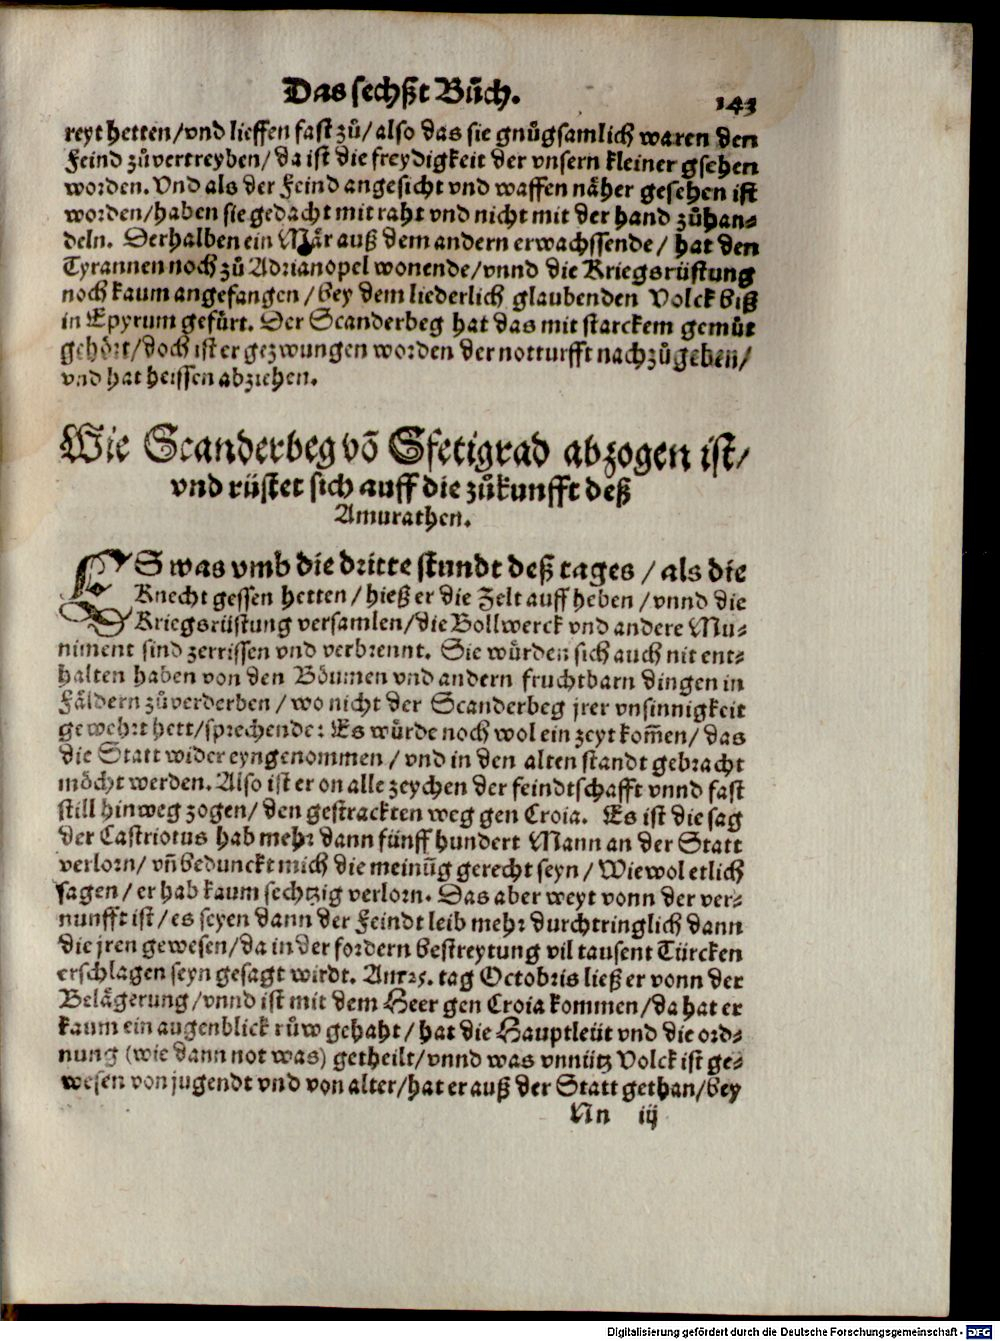 Das sechßt Bůch. 143
reyt hetten/vnd lieffen fast zů/also das sie gnůgsamlich waren den
Feind zůvertreyben/da ist die freydigkeit der vnsern kleiner gsehen
worden. Vnd als der Feind angesicht vnd waffen näher gesehen ist
worden/haben sie gedacht mit raht vnd nicht mit der hand zůhan-
deln. Derhalben ein Mär auß dem andern erwachssende/hat den
Tyrannen noch zů Adrianopel wonende/vnnd die Kriegsrüstung
noch kaum angefangen/bey dem liederlich glaubenden Volck biß
in Epyrum gefürt. Der Scanderbeg hat das mit starckem gemüt
gehört/doch ist er gezwungen worden der notturfft nachzůgeben/
vnd hat heissen abziehen.
Wie Scanderbeg võ Sfetigrad abzogen ist/
vnd rüstet sich auff die zůkunfft deß
Amurathen.
ES was vmb die dritte stundt deß tages/als die
Knecht gessen hetten/hieß er die Zelt auff heben/vnnd die
Kriegsrüstung versamlen/die Bollwerck vnd andere Mu-
niment sind zerrissen vnd verbrennt. Sie würden sich auch nit ent-
halten haben von den Böumen vnd andern fruchtbarn dingen in
Fäldern zůverderben/wo nicht der Scanderbeg jrer vnsinnigkeit
gewehrt hett/sprechende: Es würde noch wol ein zeyt kom̃en/das
die Statt wider eyngenommen/vnd in den alten standt gebracht
möcht werden. Also ist er on alle zeychen der feindtschafft vnnd fast
still hinweg zogen/den gestrackten weg gen Croia. Es ist die sag
der Castriotus hab mehr dann fünff hundert Mann an der Statt
verlorn/vñ bedunckt mich die meinũg gerecht seyn/Wiewol etlich
sagen/er hab kaum sechtzig verlorn. Das aber weyt vonn der ver-
nunfft ist/es seyen dann der Feindt leib mehr durchtringlich dann
die jren gewesen/da in der fordern bestreytung vil tausent Türcken
erschlagen seyn gesagt wirdt. Am 25. tag Octobris ließ er vonn der
Belägerung/vnnd ist mit dem Heer gen Croia kommen/da hat er
kaum ein augenblick růw gehaht/hat die Hauptleüt vnd die ord-
nung (wie dann not was) getheilt/vnnd was vnnütz Volck ist ge-
wesen von jugendt vnd von alter/hat er auß der Statt gethan/bey
Nn iij
Digitalisierung gefördert durch die Deutsche Forschungsgemeinschaft - DFG